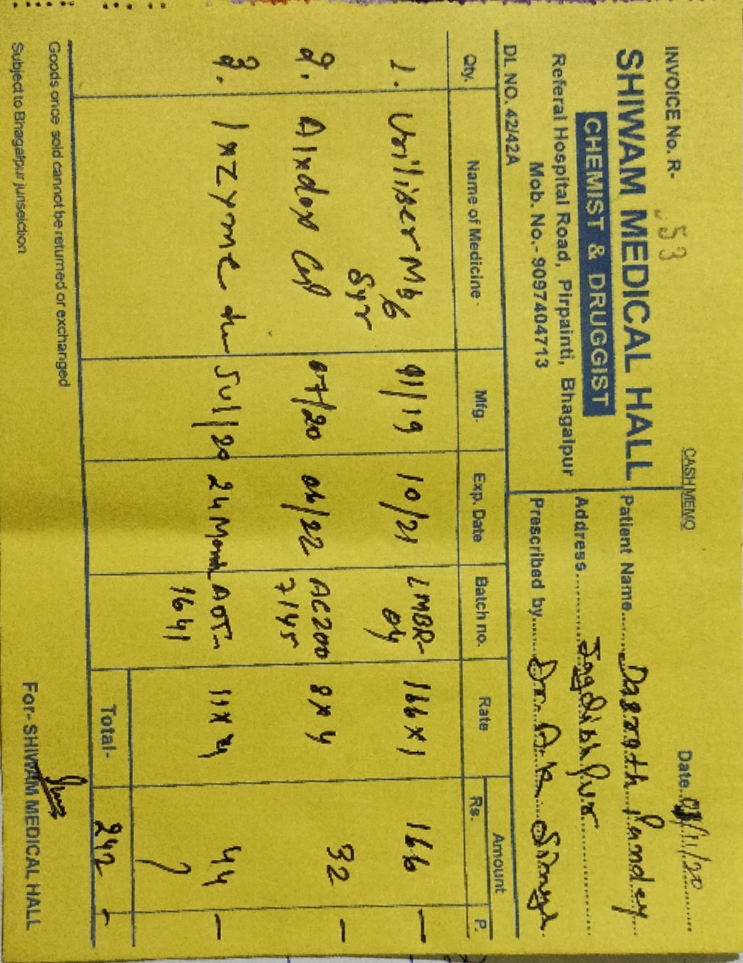 INVOICE No. R- 53
CASH MEMO
Date 03/11/20
SHIWAM MEDICAL HALL
CHEMIST & DRUGGIST
Referal Hospital Road, Pirpainti, Bhagalpur
Mob. No.- 9097404713
DL NO. 42/42A
Patient Name Dasrath Pandey
Address Jagdishpur
Prescribed by Dr. A.K
Qty. Name of Medicine Mfg. Exp. Date Batch no. Rate Amount
Rs. P.
1. Uriliser Mb6 Syr 11/19 10/21 LMBR-04 166x1 166 —
2. Alxdox Cap 07/20 06/22 AC200 7145 8x4 32 —
3. Inzyme Jul/20 24 Month AOT-1641 11x4 44 —
Total- 242 —
Goods once sold cannot be returned or exchanged
Subject to Bhagalpur juriseiction
For- SHIWAM MEDICAL HALL